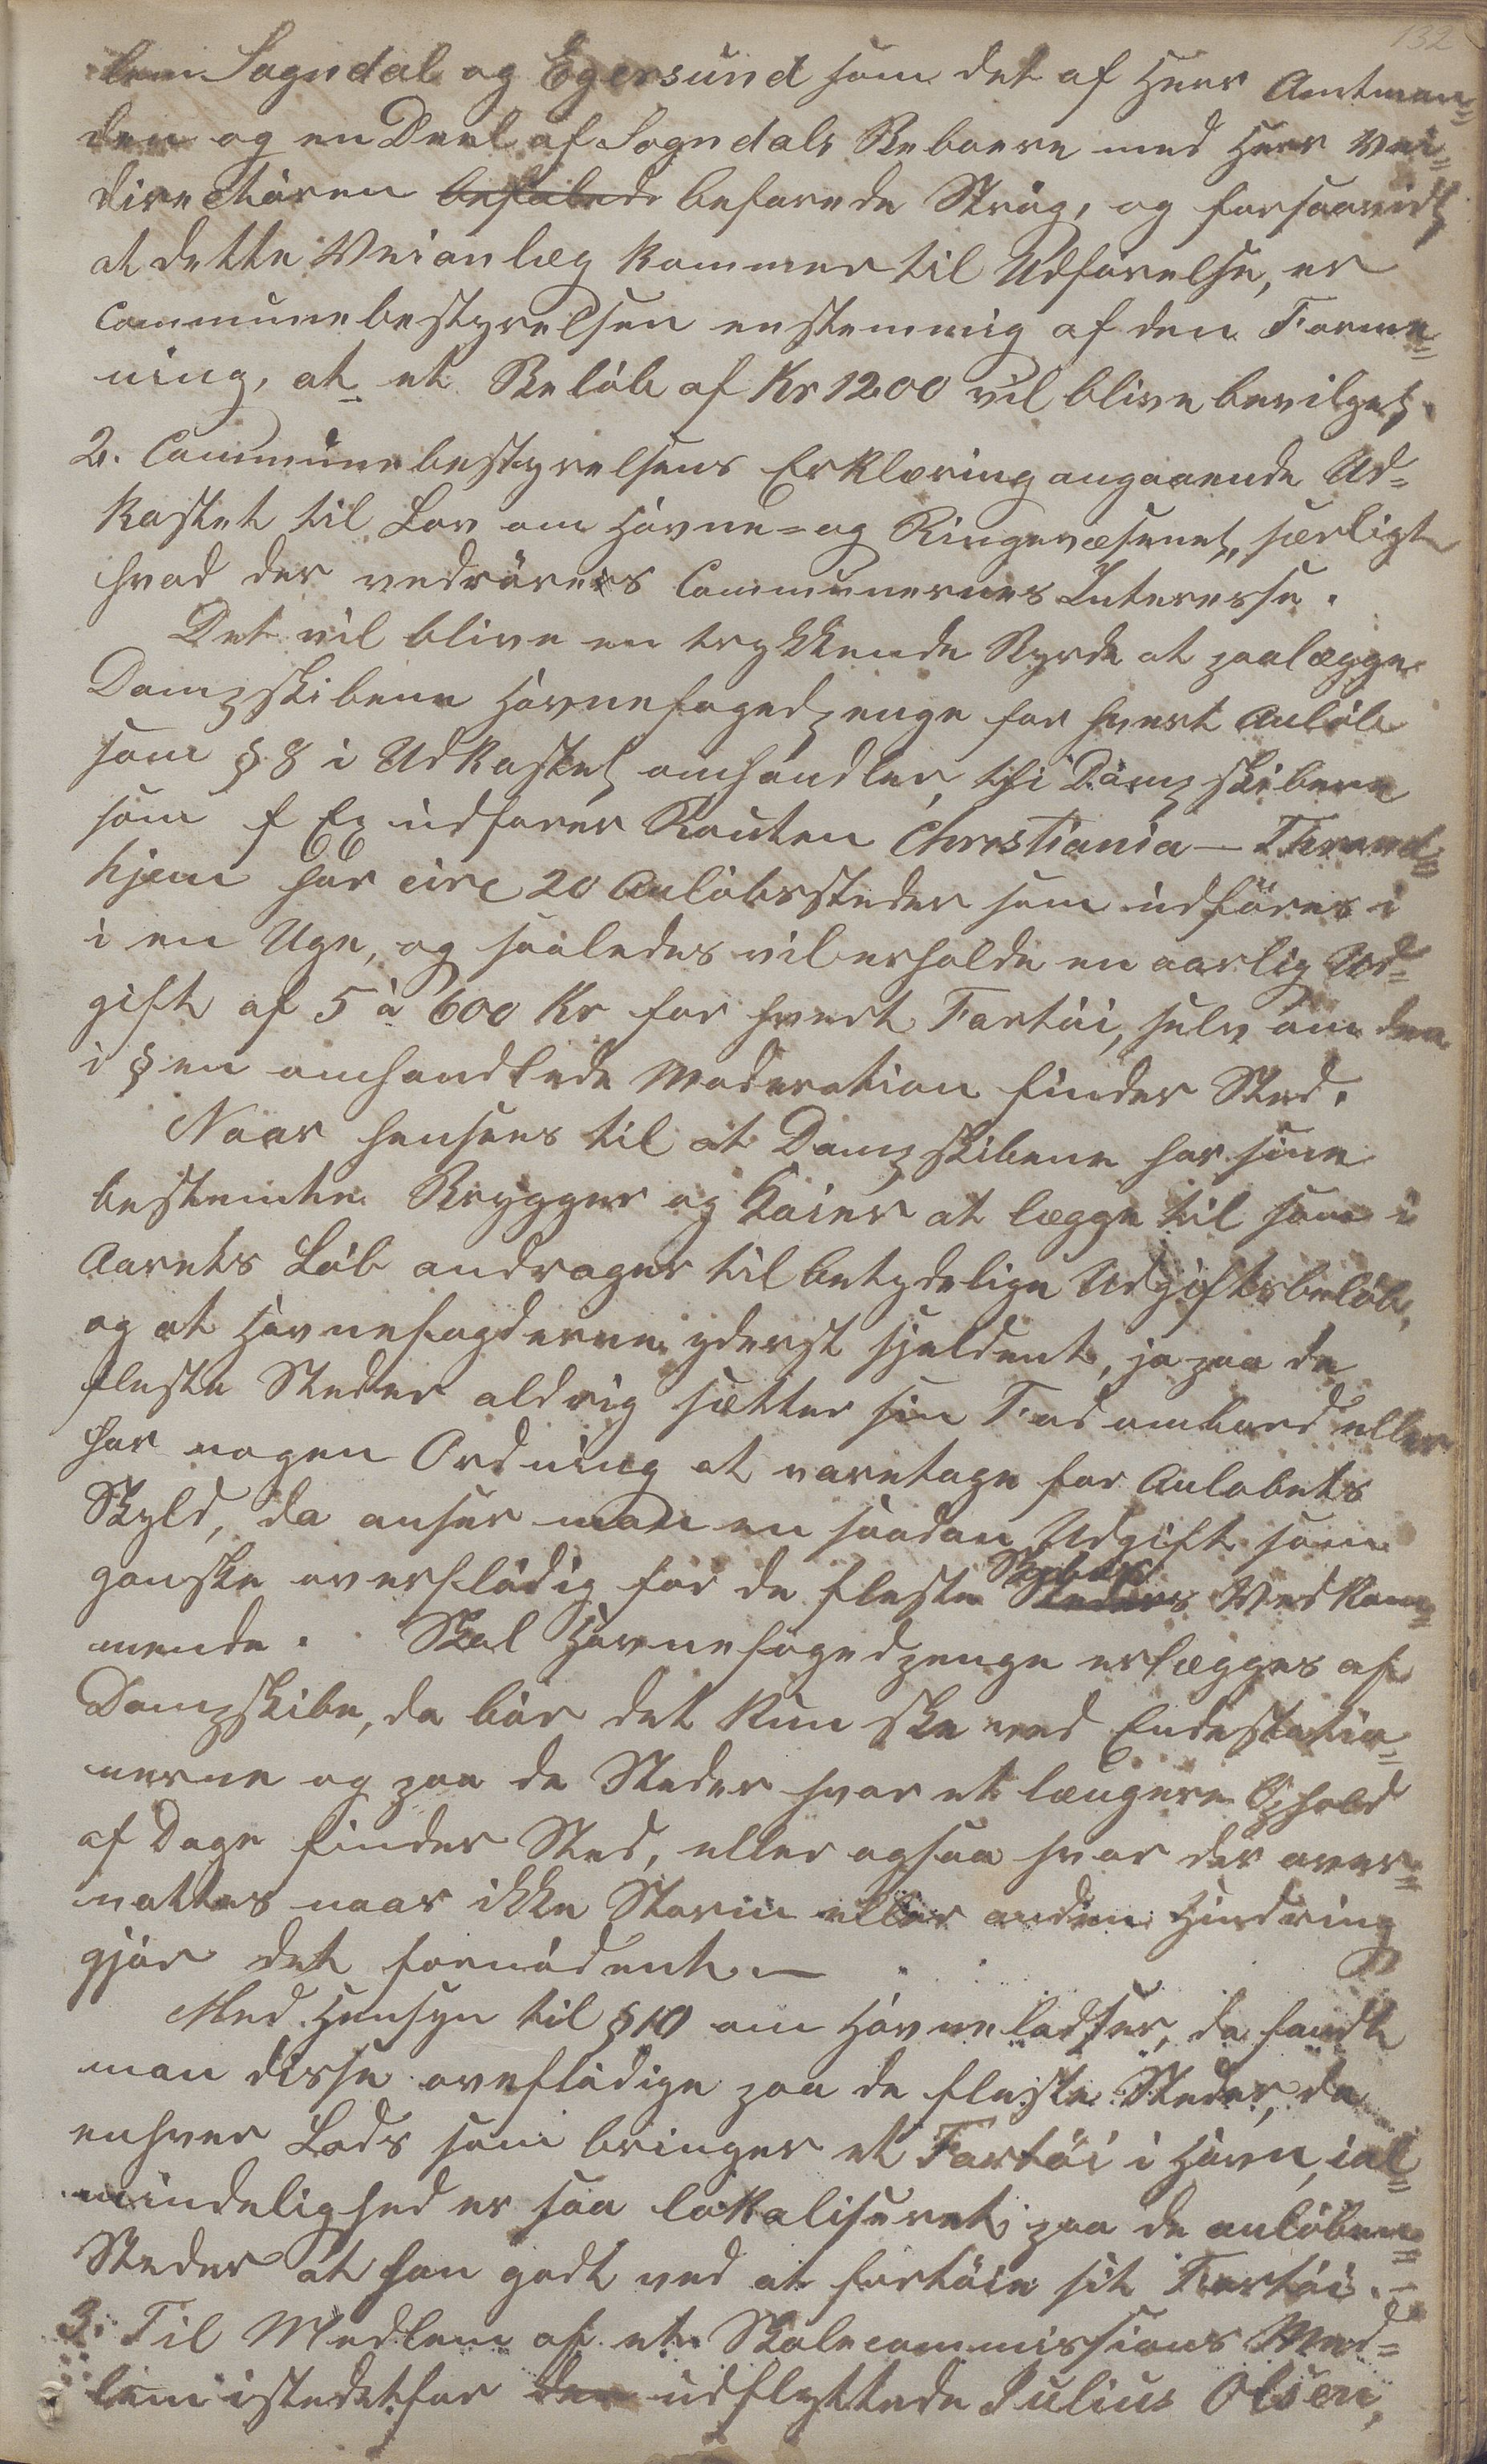 132
lem Sogndal og Egersund som det af Herr Amtman-
den og en Deel af Sogndals Beboere med Herr Vei-
direktøren befalede befarede Strøg, og forsaavidt
at dette Veianlæg kommer til Udførelse, er
Communebestyrelsen enstemmig af den Forme-
ning, at et Beløb af Kr 1200 vil blive bevilget.
2. Communebestyrelsens Erklæring angaaende Ud-
kastet til Lov om Havne- og Ringevæsenet, særligt
hvad der vedrører Communernes Interesse.
Det vil blive en trykkende Byrde at paalægge
Dampskibene Havnefogedpenge for hvert Anløb
som § 8 i Udkastet omhandler, thi Dampskibene
som f Ex udfarer Routen Christiania - Thrond-
hjem har circ 20 Anløbssteder som udføres i
i en Uge, og saaledes vil erholde en aarlig Ud-
gift af 5 à 600 Kr for hvert Fartøi, selv om den
i §en omhandlede Moderation finder Sted.
Naar hensees til at Dampskibene har sine
bestemte Brygger og Kaier at lægge til som i
Aarets Løb andrager til betydelige Udgiftsbeløb,
og at Havnefogderne yderst sjeldent, ja paa de
fleste Steder aldrig sætter sin Fod ombord eller
har nogen Ordning at varetage for Anløbets
Skyld, da anser man en saadan Udgift som
ganske overflødig for de fleste Steders Vedkom-
mende. Skal Havnefogedpenge erlægges af
Dampskibe, da bør det kun ske ved Endestatio-
nerne og paa de Steder hvor et længere Ophold
af Dage finder Sted, eller ogsaa hvor der over-
nattes naar ikke Storm eller anden Hindring
gjør det fornødent. —
Med Hensyn til § 10 om Havnelodser, da fandt
man disse overflødige paa de fleste Steder, da
enhver Lods som bringer et Fartøi i Havn, ial-
mindelighed er saa lokaliseret paa de anløbne
Steder at han godt ved at fortøie sit Fartøi. —
3. Til Medlem af et Skolecommissions Med-
lem istedetfor den udflyttede Julius Olsen,